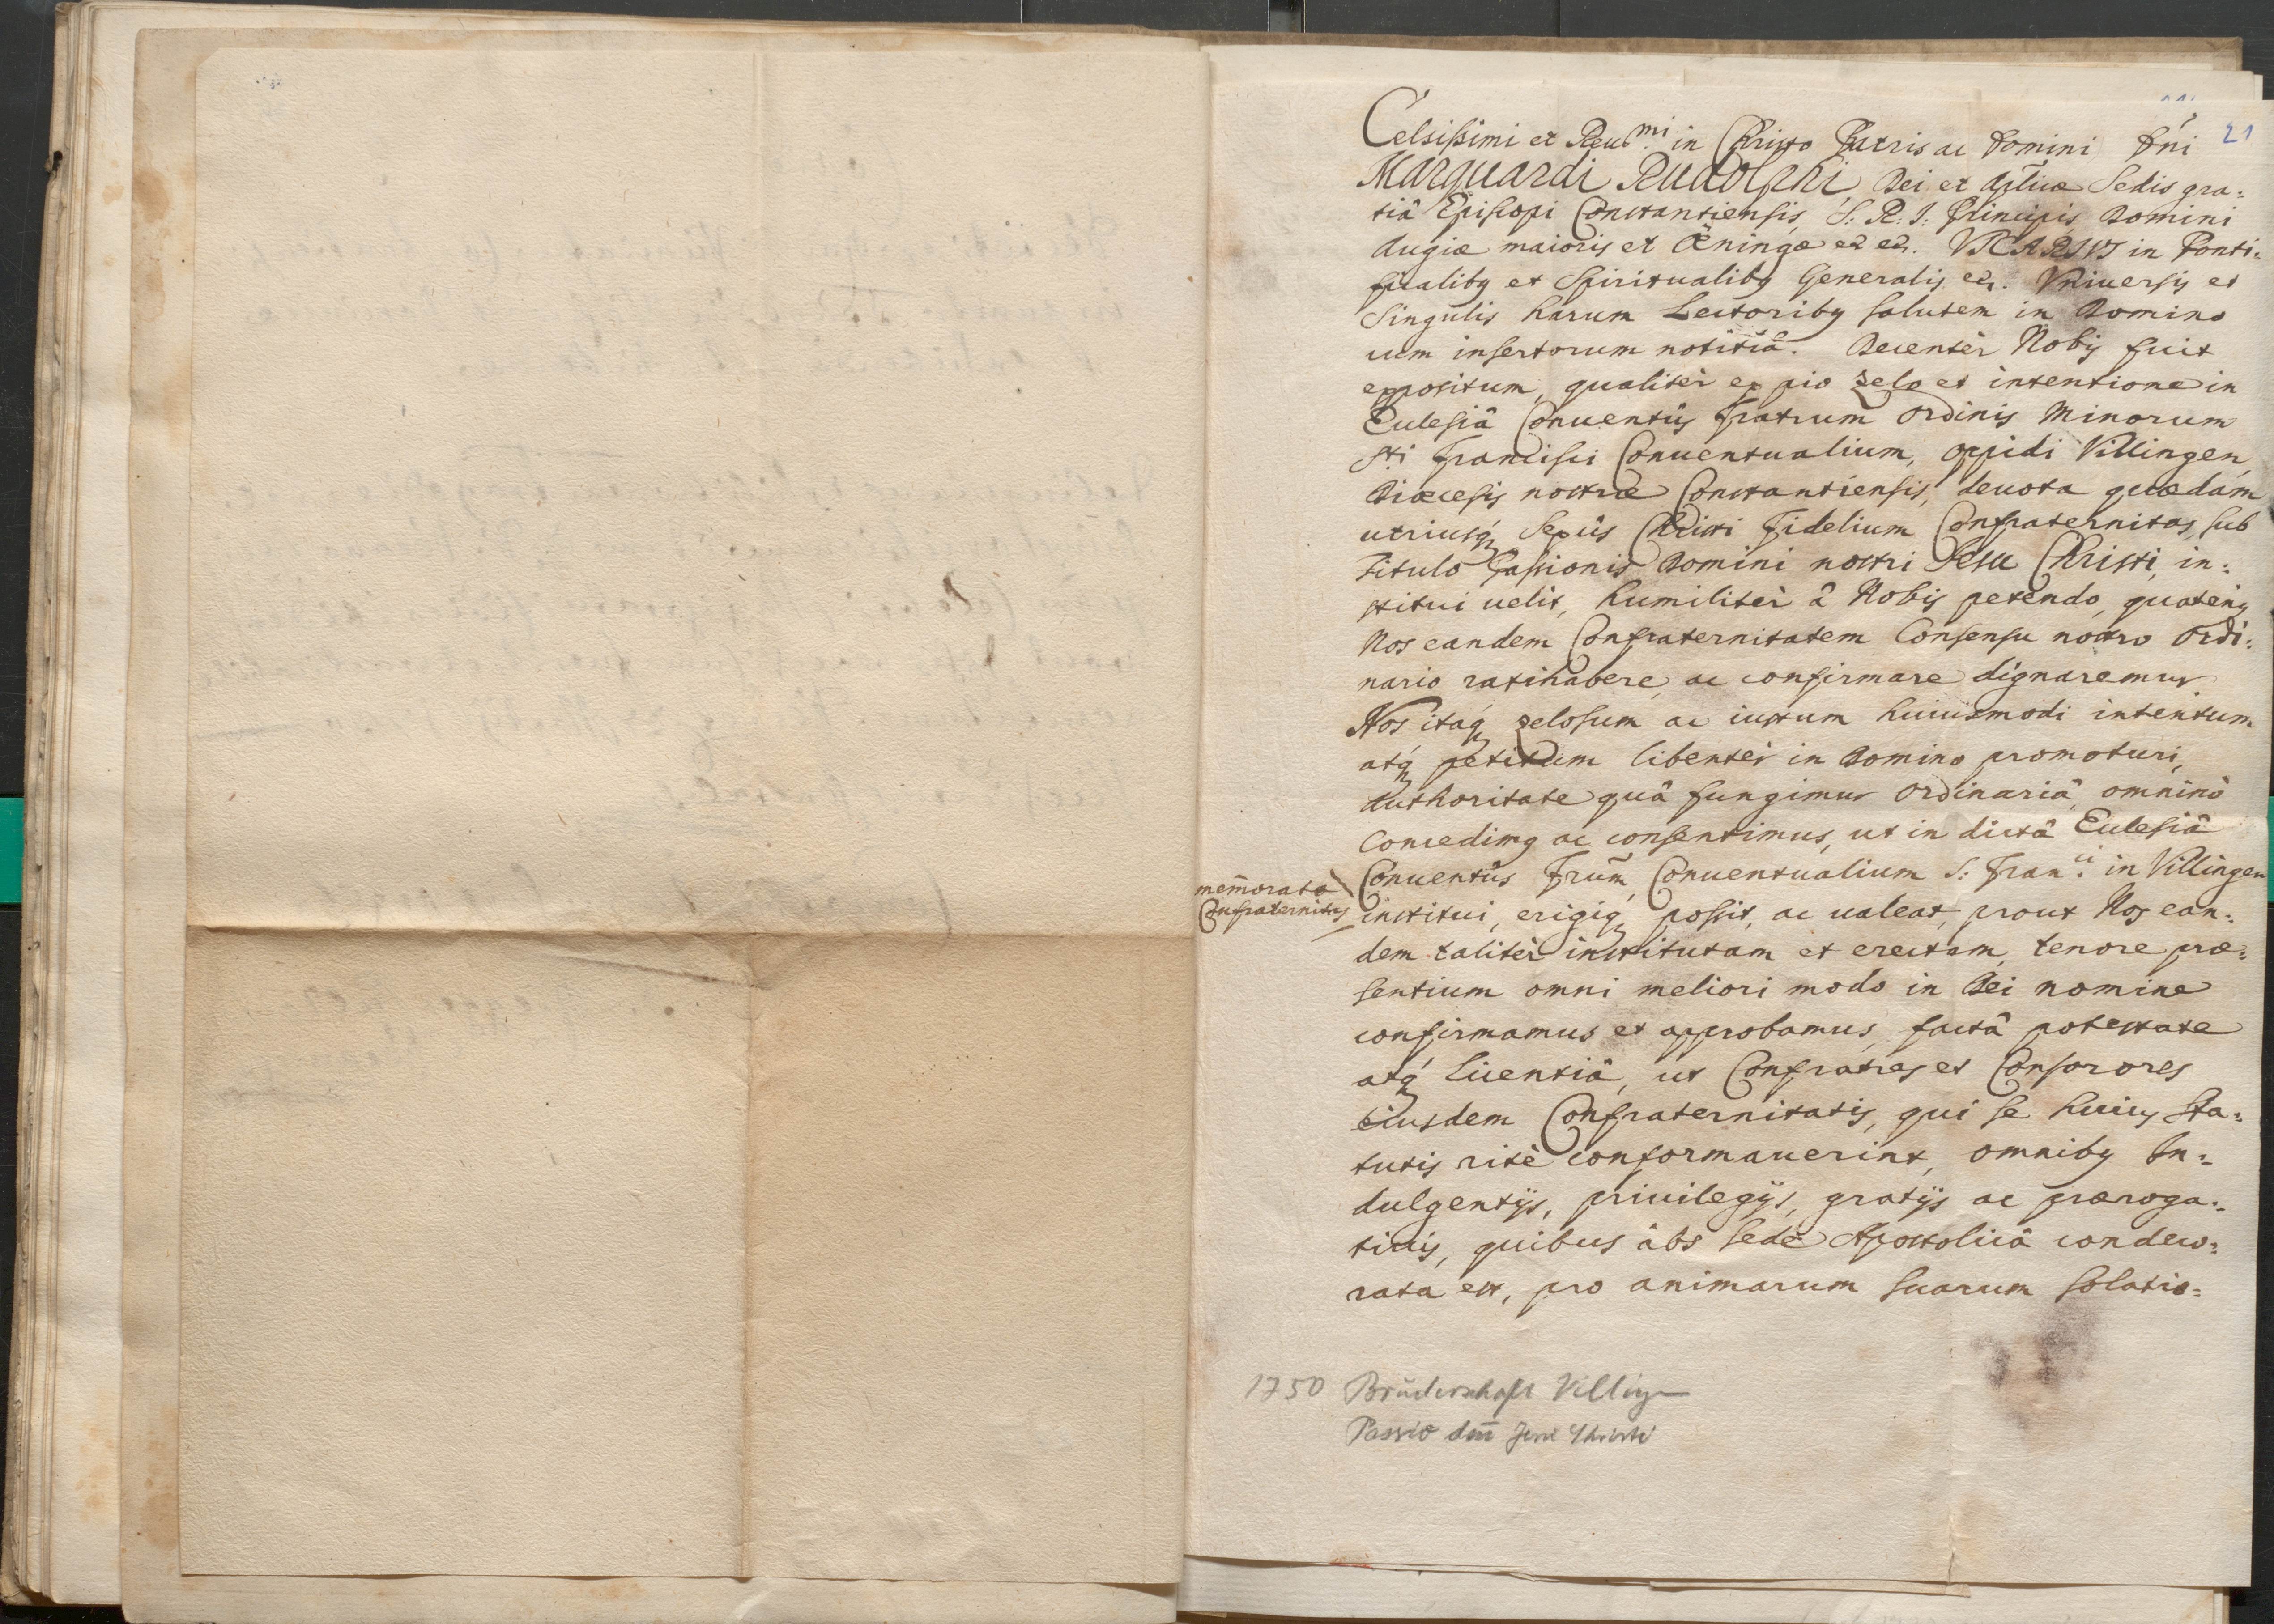 21
Celsissimi et Reud.mi in Christo Patris ac Domini Dn̄i
MARQUARDI RUDOLPHI Dei et Ap̄licæ Sedis gra:
tiâ Episcopi Constantiensis, S: R: I: Principis, Domini
Augiæ maioris et Œningæ etc etc. VICARIVS in Ponti:
ficalibq et Spiritualibq Generalis etc. Vniuersis et
Singulis harum Lectoribq salutem in Domino
cum insertorum notitiâ. Decentèr Nobis fuit
expositum, qualitèr ex pio zelo et intentione in
Ecclesiâ Conuentûs Fratrum Ordinis Minorum
S.ti Francisci Conuentualium, oppidi Villingen,
Diœcesis nostræ Constantiensis, deuota quædam
utriusq́ sexûs Christi Fidelium Confraternitas, sub
titulo Passionis Domini nostri Jesu Christi, in:
stitui uelit, humilitèr â Nobis petendo, quatenq
Nos eandem Confraternitatem Consensu nostro Ordi:
nario ratihabere, ac confirmare dignaremur.
Nos itaq́ zelosum ac iustum huiusmodi intentum
atq́ petitum libentèr in Domino promoturi,
Authoritate quâ fungimur Ordinariâ, omninò
Concedimq ac consentimus, ut in dictâ Ecclesiâ
Conuentûs Frūm Conuentualium S: Fran.ci in Villingen
mem̄orata
Confraternitas
institui, erigiq́ possit, ac ualeat, prout Nos ean:
dem talitèr institutam et erectam, tenore præ:
sentium omni meliori modo in Dei nomine
confirmamus et approbamus, factâ potestate
atq́ licentiâ, ut Confratres et Consorores
eiusdem Confraternitatis, qui se huius Sta:
tutis ritè conformauerint, omnibq In:
dulgentijs, priuilegijs, gratijs ac præroga:
tiuis, quibus âbs Sede Apostolicâ condeco:
rata est, pro animarum suarum solatio:
1750 Bruderschaft Villing
Passio dn̄i Jesu Christi